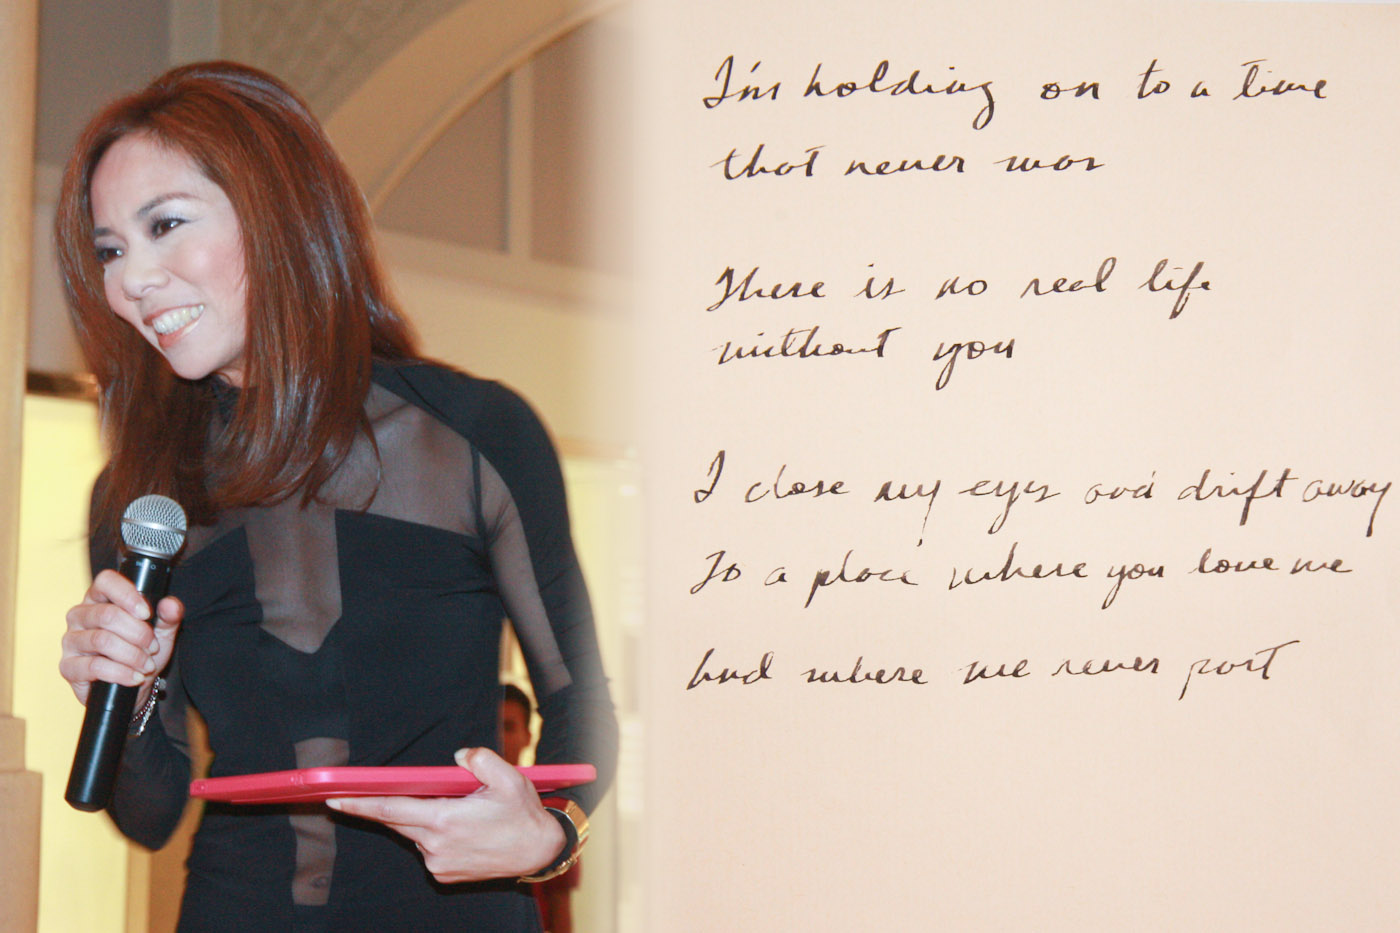 I'm holding on to a time
that never was
There is no real life
without you
I close my eyes and drift away
To a place where you love me
And where we never part